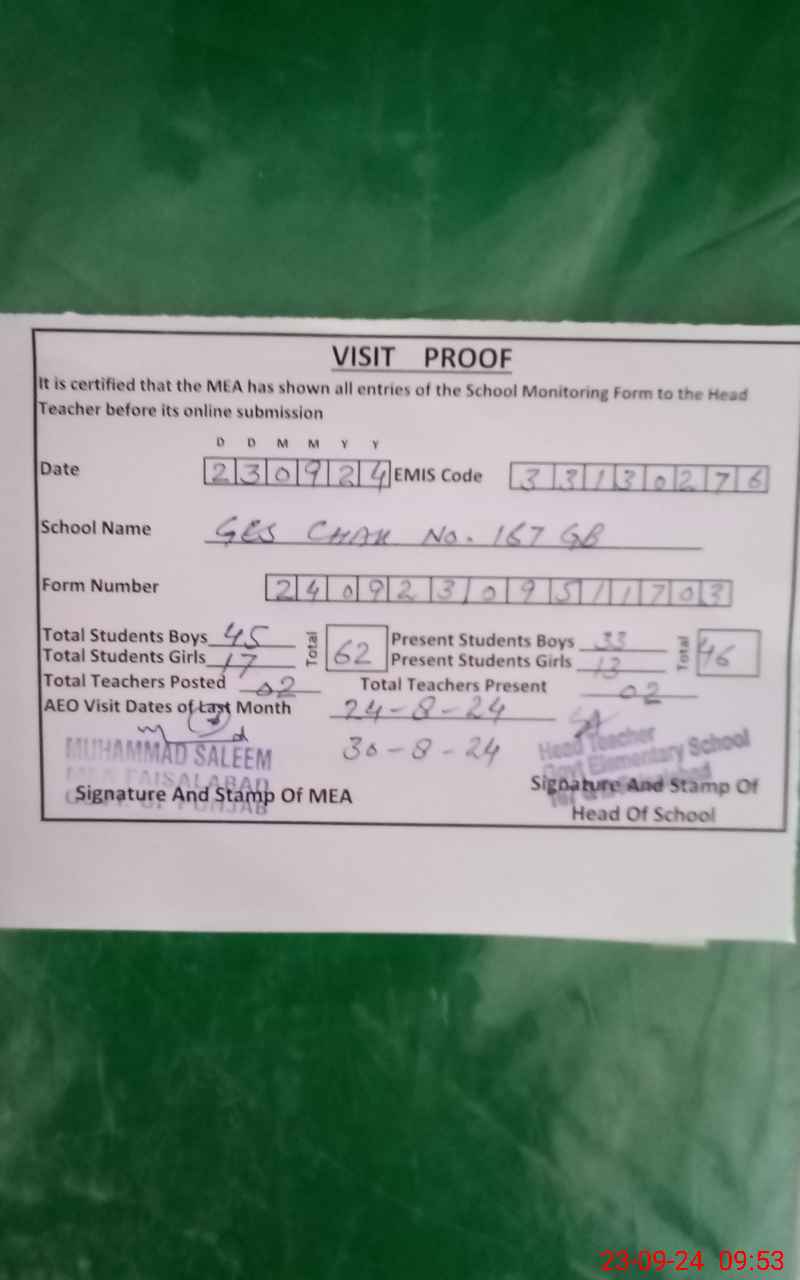 VISIT PROOF
It is certified that the MEA has shown all entries of the School Monitoring Form to the Head
Teacher before its online submission
D D M M Y Y
Date 230924 EMIS Code 33130276
School Name GES CHAK No. 167 GB
Form Number 2409230951703
Total Students Boys 45 Total 62 Present Students Boys 33 Total 46
Total Students Girls 17 Present Students Girls 13
Total Teachers Posted 02 Total Teachers Present 02
AEO Visit Dates of Last Month 24-8-24
30-8-24
MUHAMMAD SALEEM
MEA FAISALABAD
PUNJAB
Signature And Stamp Of MEA
Head Teacher
Govt Elementary School
Signature And Stamp Of
Head Of School
23-09-24 09:53